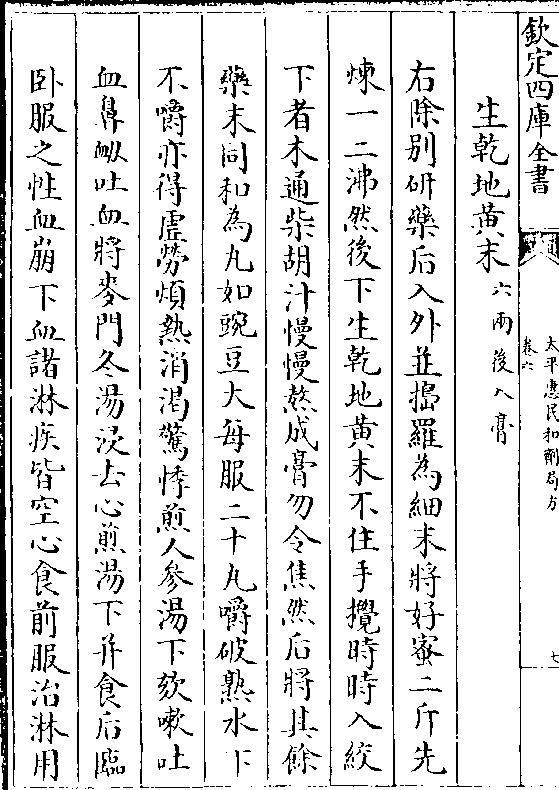 欽定四庫全書
太平惠民和劑局方
卷六
七
生乾地黃末六兩後入膏
右除别研藥后入外並搗羅為細末將好蜜二斤先
煉一二沸然後下生乾地黃末不住手攪時時入絞
下者木通柴胡汁慢慢熬成膏勿令焦然后將其餘
藥末同和為丸如豌豆大每服二十丸嚼破熱水下
不嚼亦得虛勞煩熱消渴驚悸煎人參湯下欬嗽吐
血鼻衂吐血將麥門冬湯浸去心煎湯下并食后臨
卧服之性血崩下血諸淋疾皆空心食前服治淋用